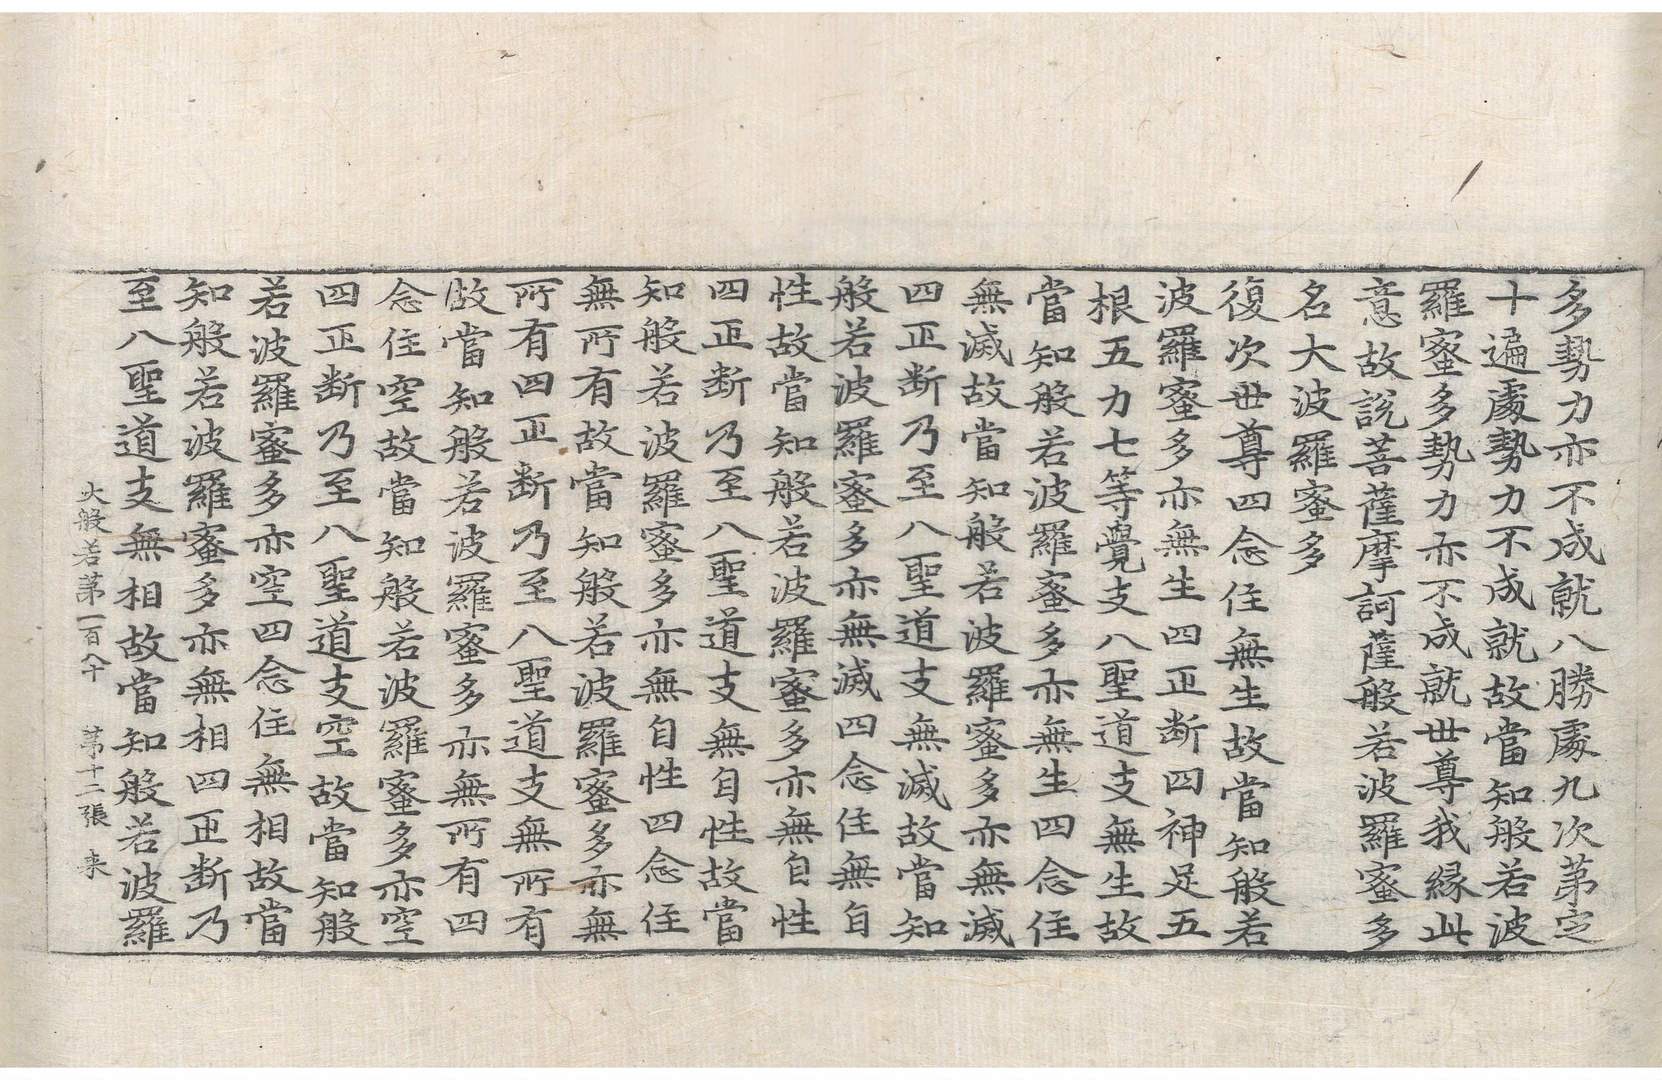 多勢力亦不成就八勝處九次第定
十遍處勢力不成就故當知般若波
羅蜜多勢力亦不成就世尊我緣此
意故說菩薩摩訶薩般若波羅蜜多
名大波羅蜜多
復次世尊四念住無生故當知般若
波羅蜜多亦無生四正断四神足五
根五力七等覺支八聖道支無生故
當知般若波羅蜜多亦無生四念住
無滅故當知般若波羅蜜多亦無滅
四正断乃至八聖道支無滅故當知
般若波羅蜜多亦無滅四念住無自
性故當知般若波羅蜜多亦無自性
四正断乃至八聖道支無自性故當
知般若波羅蜜多亦無自性四念住
無所有故當知般若波羅蜜多亦無
所有四正断乃至八聖道支無所有
故當知般若波羅蜜多亦無所有四
念住空故當知般若波羅蜜多亦空
四正断乃至八聖道支空故當知般
若波羅蜜多亦空四念住無相故當
知般若波羅蜜多亦無相四正断乃
至八聖道支無相故當知般若波羅
大般若第一百八十 第十二張 来